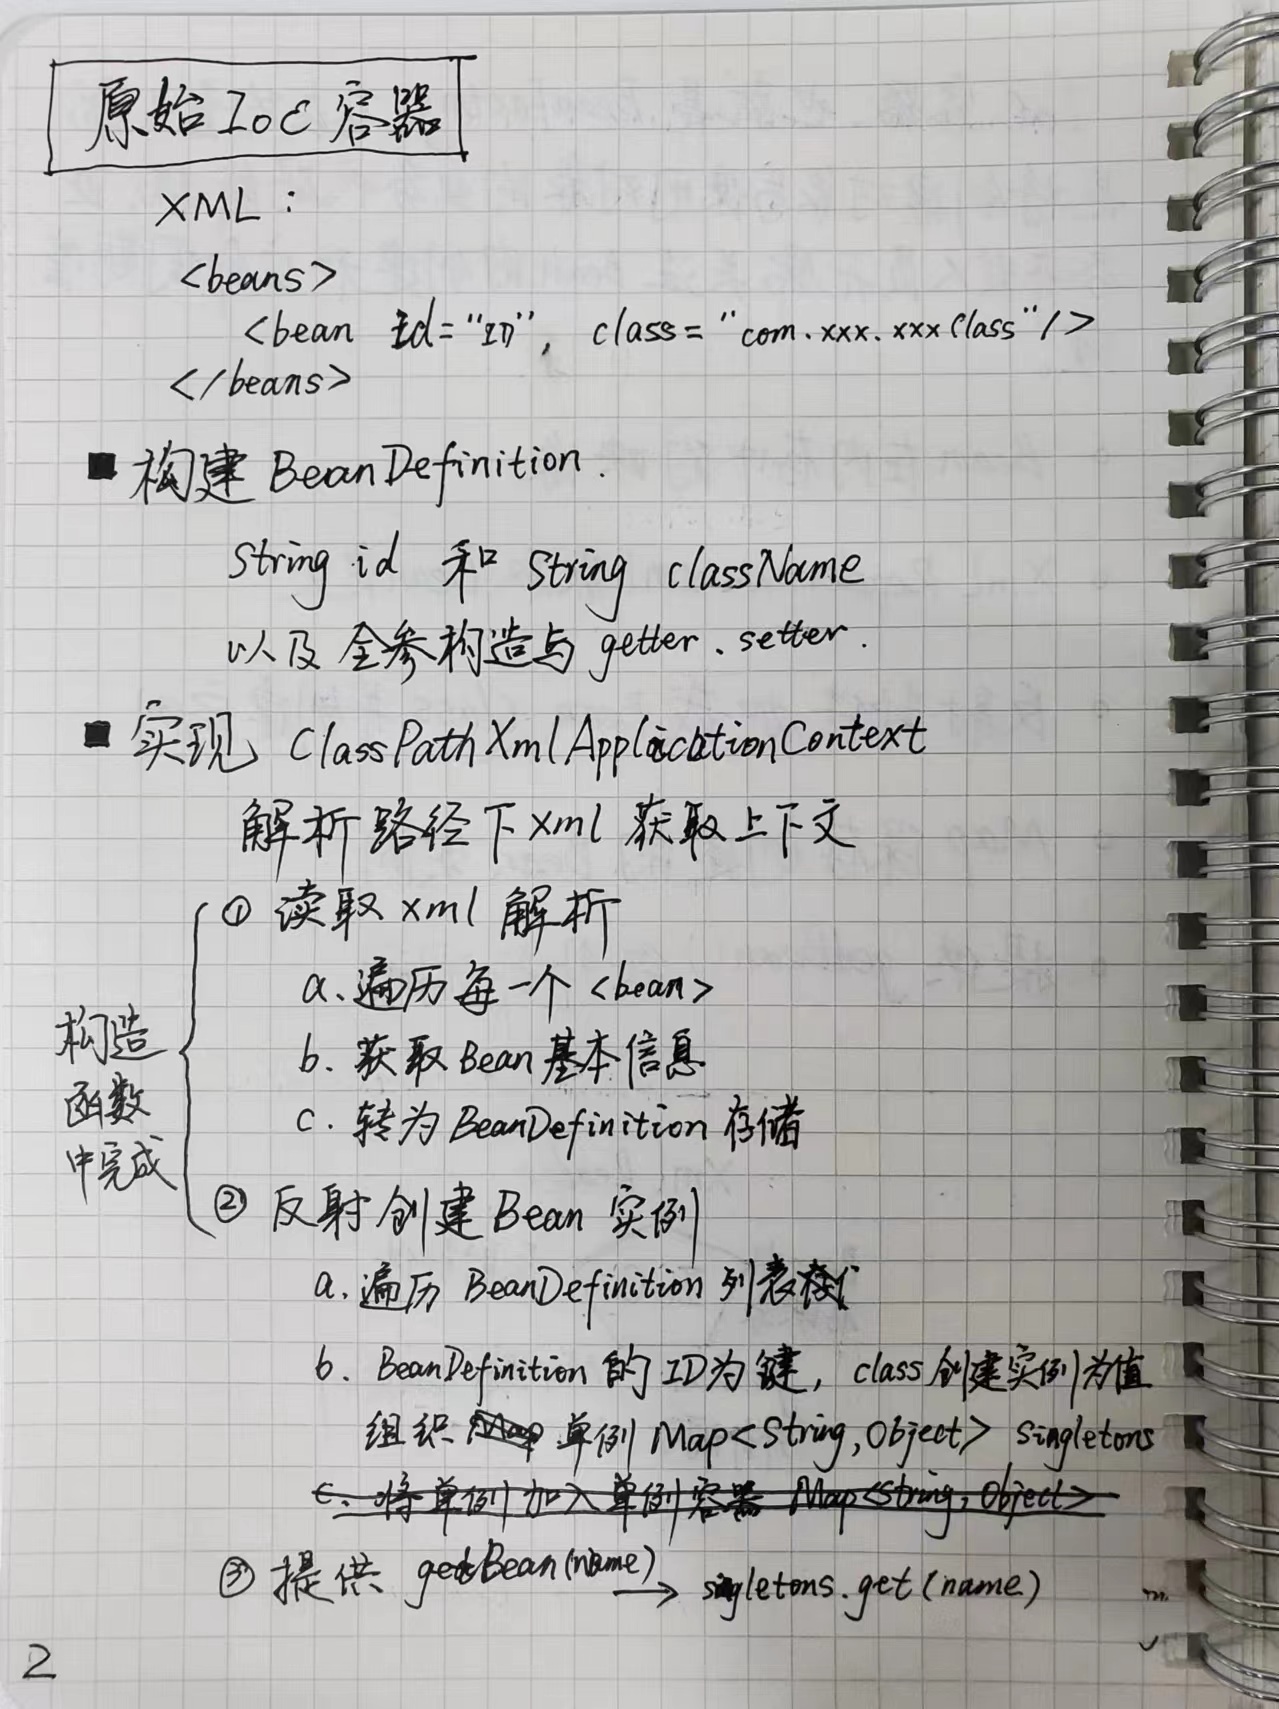 原始IoC容器
XML：
<beans>
<bean id="ID", class="com.xxx.xxxClass"/>
</beans>
■ 构建 BeanDefinition.
String id 和 String className
以及 全参构造与 getter、setter.
■ 实现 ClassPathXmlApplicationContext
解析路径下xml 获取上下文
① 读取xml解析
a. 遍历每一个 <bean>
b. 获取Bean基本信息
c. 转为BeanDefinition存储
构造
函数
中完成
② 反射创建Bean实例
a. 遍历 BeanDefinition 列表
b. BeanDefinition 的ID为键，class创建实例为值
组织 Map 单例 Map<String,Object> singletons
c. 将单例加入单例容器 Map<String,Object>
③ 提供 getBean(name) → singletons.get(name)
2